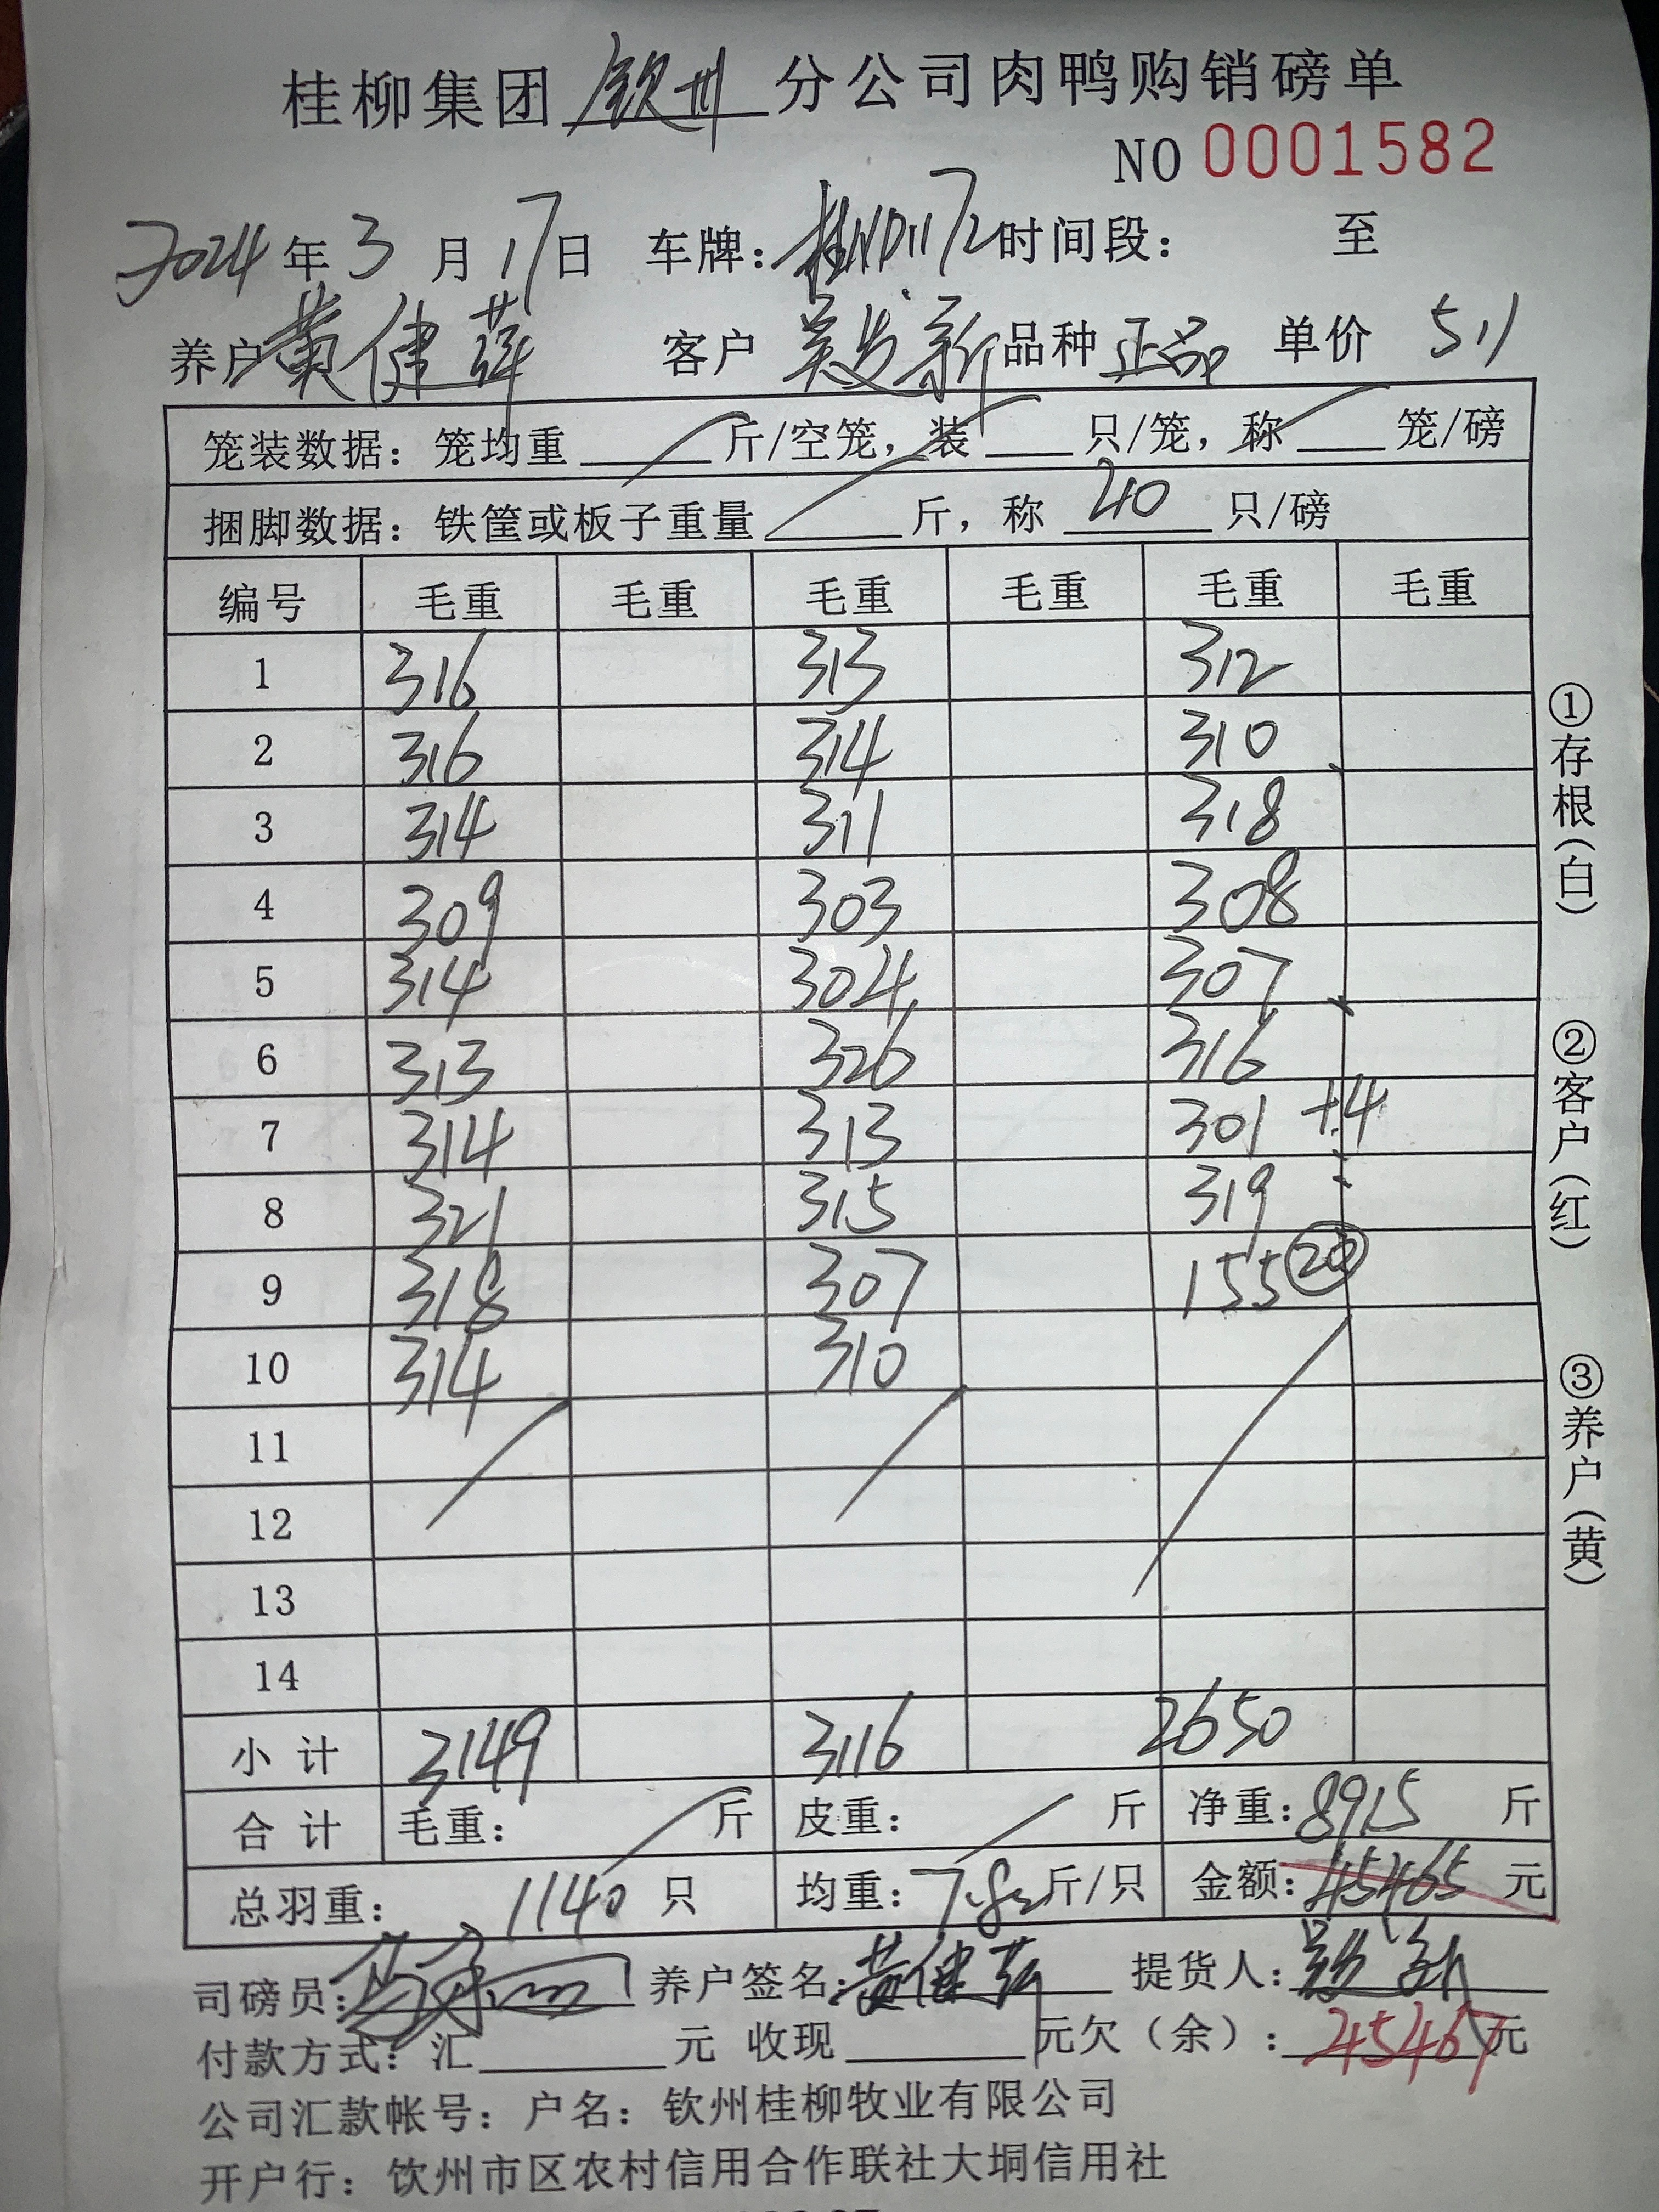 桂柳集团 钦州 分公司肉鸭购销磅单
NO 0001582
2024 年 3 月 17 日 车牌：桂ND1172 时间段： 至
养户 黄健萍 客户 吴发新 品种 正品 单价 5.1
笼装数据：笼均重 斤/空笼，装 只/笼，称 笼/磅
捆脚数据：铁筐或板子重量 斤，称 40 只/磅
编号 毛重 毛重 毛重 毛重 毛重 毛重
1 316 313 312
2 316 314 310
3 314 311 318
4 309 303 308
5 314 304 307
6 313 326 316
7 314 313 301 +4
8 321 315 319
9 318 307 155 20
10 314 310
11
12
13
14
小计 3149 3116 2650
合计 毛重： 斤 皮重： 斤 净重：8915 斤
总羽重： 1140 只 均重：7.82 斤/只 金额：45465 元
司磅员： 养户签名：黄健萍 提货人：吴发新
付款方式：汇 元 收现 元欠（余）：45467元
公司汇款帐号：户名：钦州桂柳牧业有限公司
开户行：钦州市区农村信用合作联社大垌信用社
①存根（白）
②客户（红）
③养户（黄）